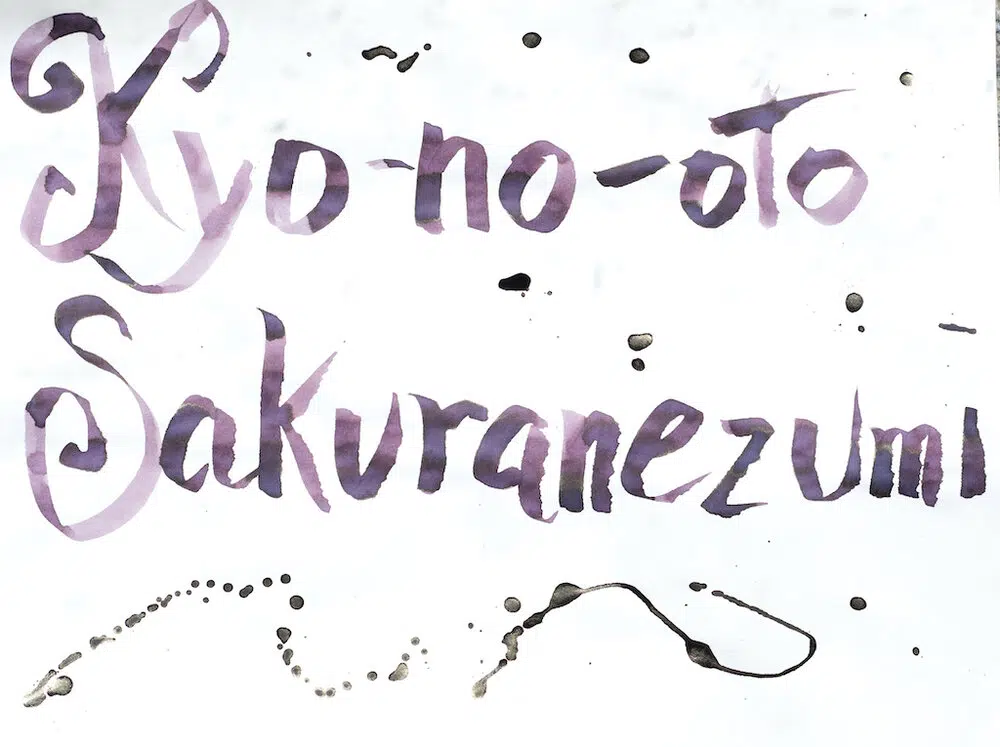 Kyo-no-oto
Sakuranezumi